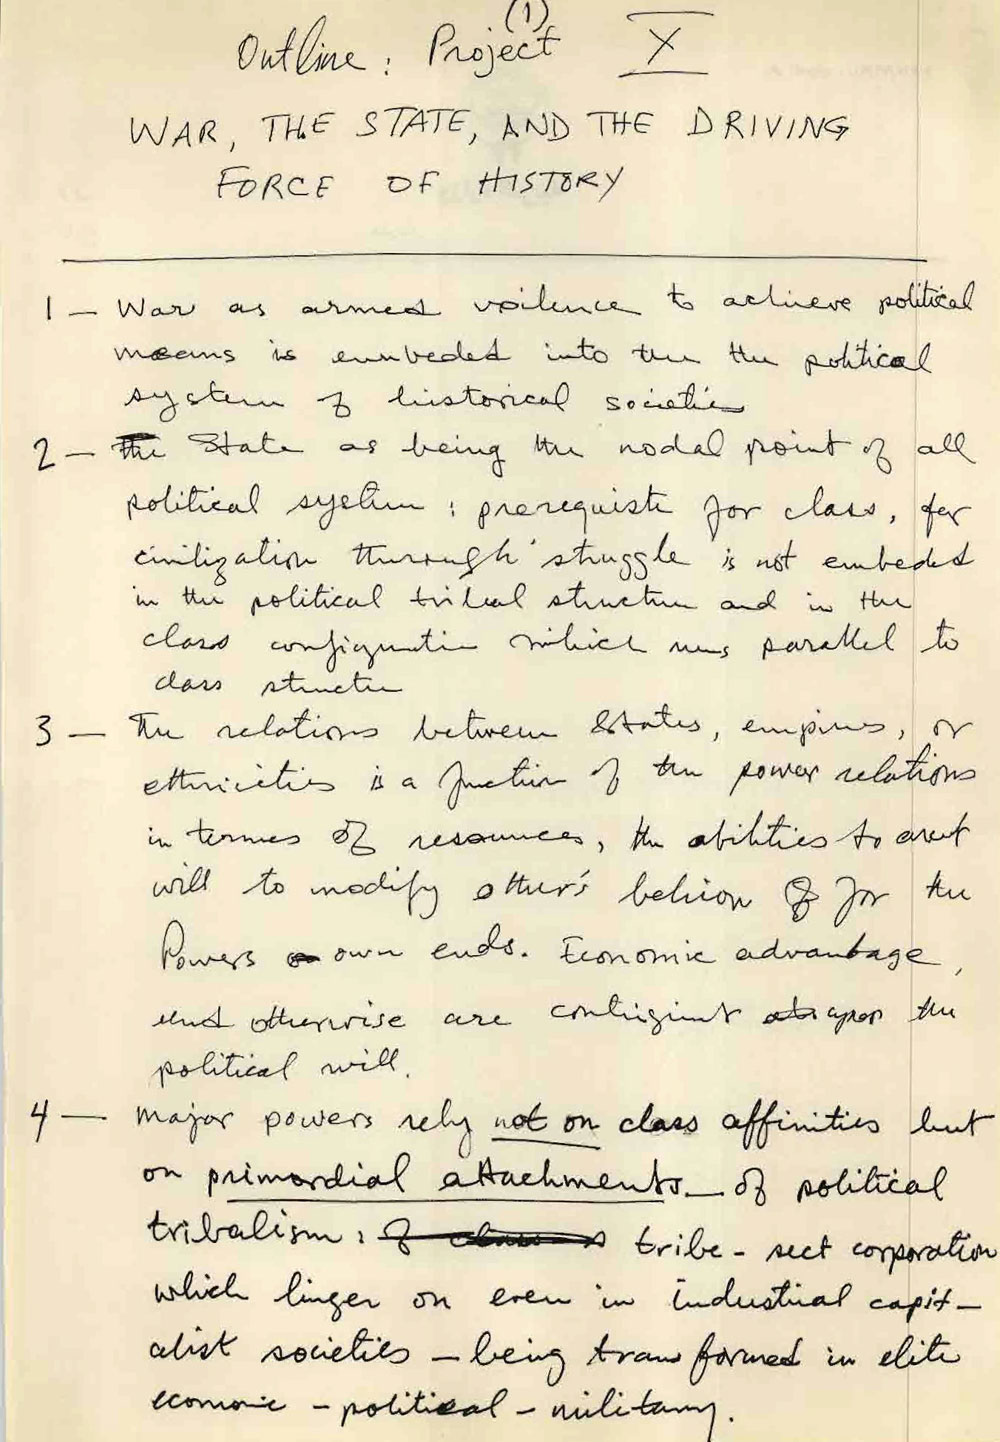 (1)
Outline: Project X
WAR, THE STATE, AND THE DRIVING
FORCE OF HISTORY
1 — War as armed voilence to achieve political
means is embeded into the the political
system of historical societies
2 — the State as being the nodal point of all
political system: prerequiste for class, for
civilization through struggle is not embeded
in the political tribal structure and in the
class configuration which runs parallel to
class structure
3 — The relations between States, empires, or
ethnicities is a function of the power relations
in termes of resources, the abilities to
will to modify other's for the
Powers own ends. Economic advantage,
and otherwise are contigint upon the
political will.
4 — Major powers rely not on class affinities but
on primordial attachments — of political
tribalism: tribe - sect corporation
which linger on even in industrial capit-
alist societies — being transformed in elite
economic - political - military.